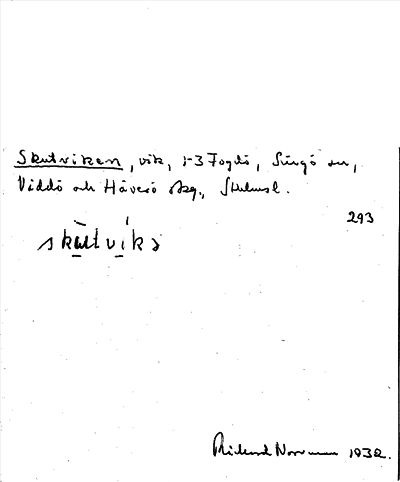 Skutviken, vik, 1-3 Fogdö, Singö sn,
Väddö och Häverö skg., Sthlmsl.
293
Norrman 1932.